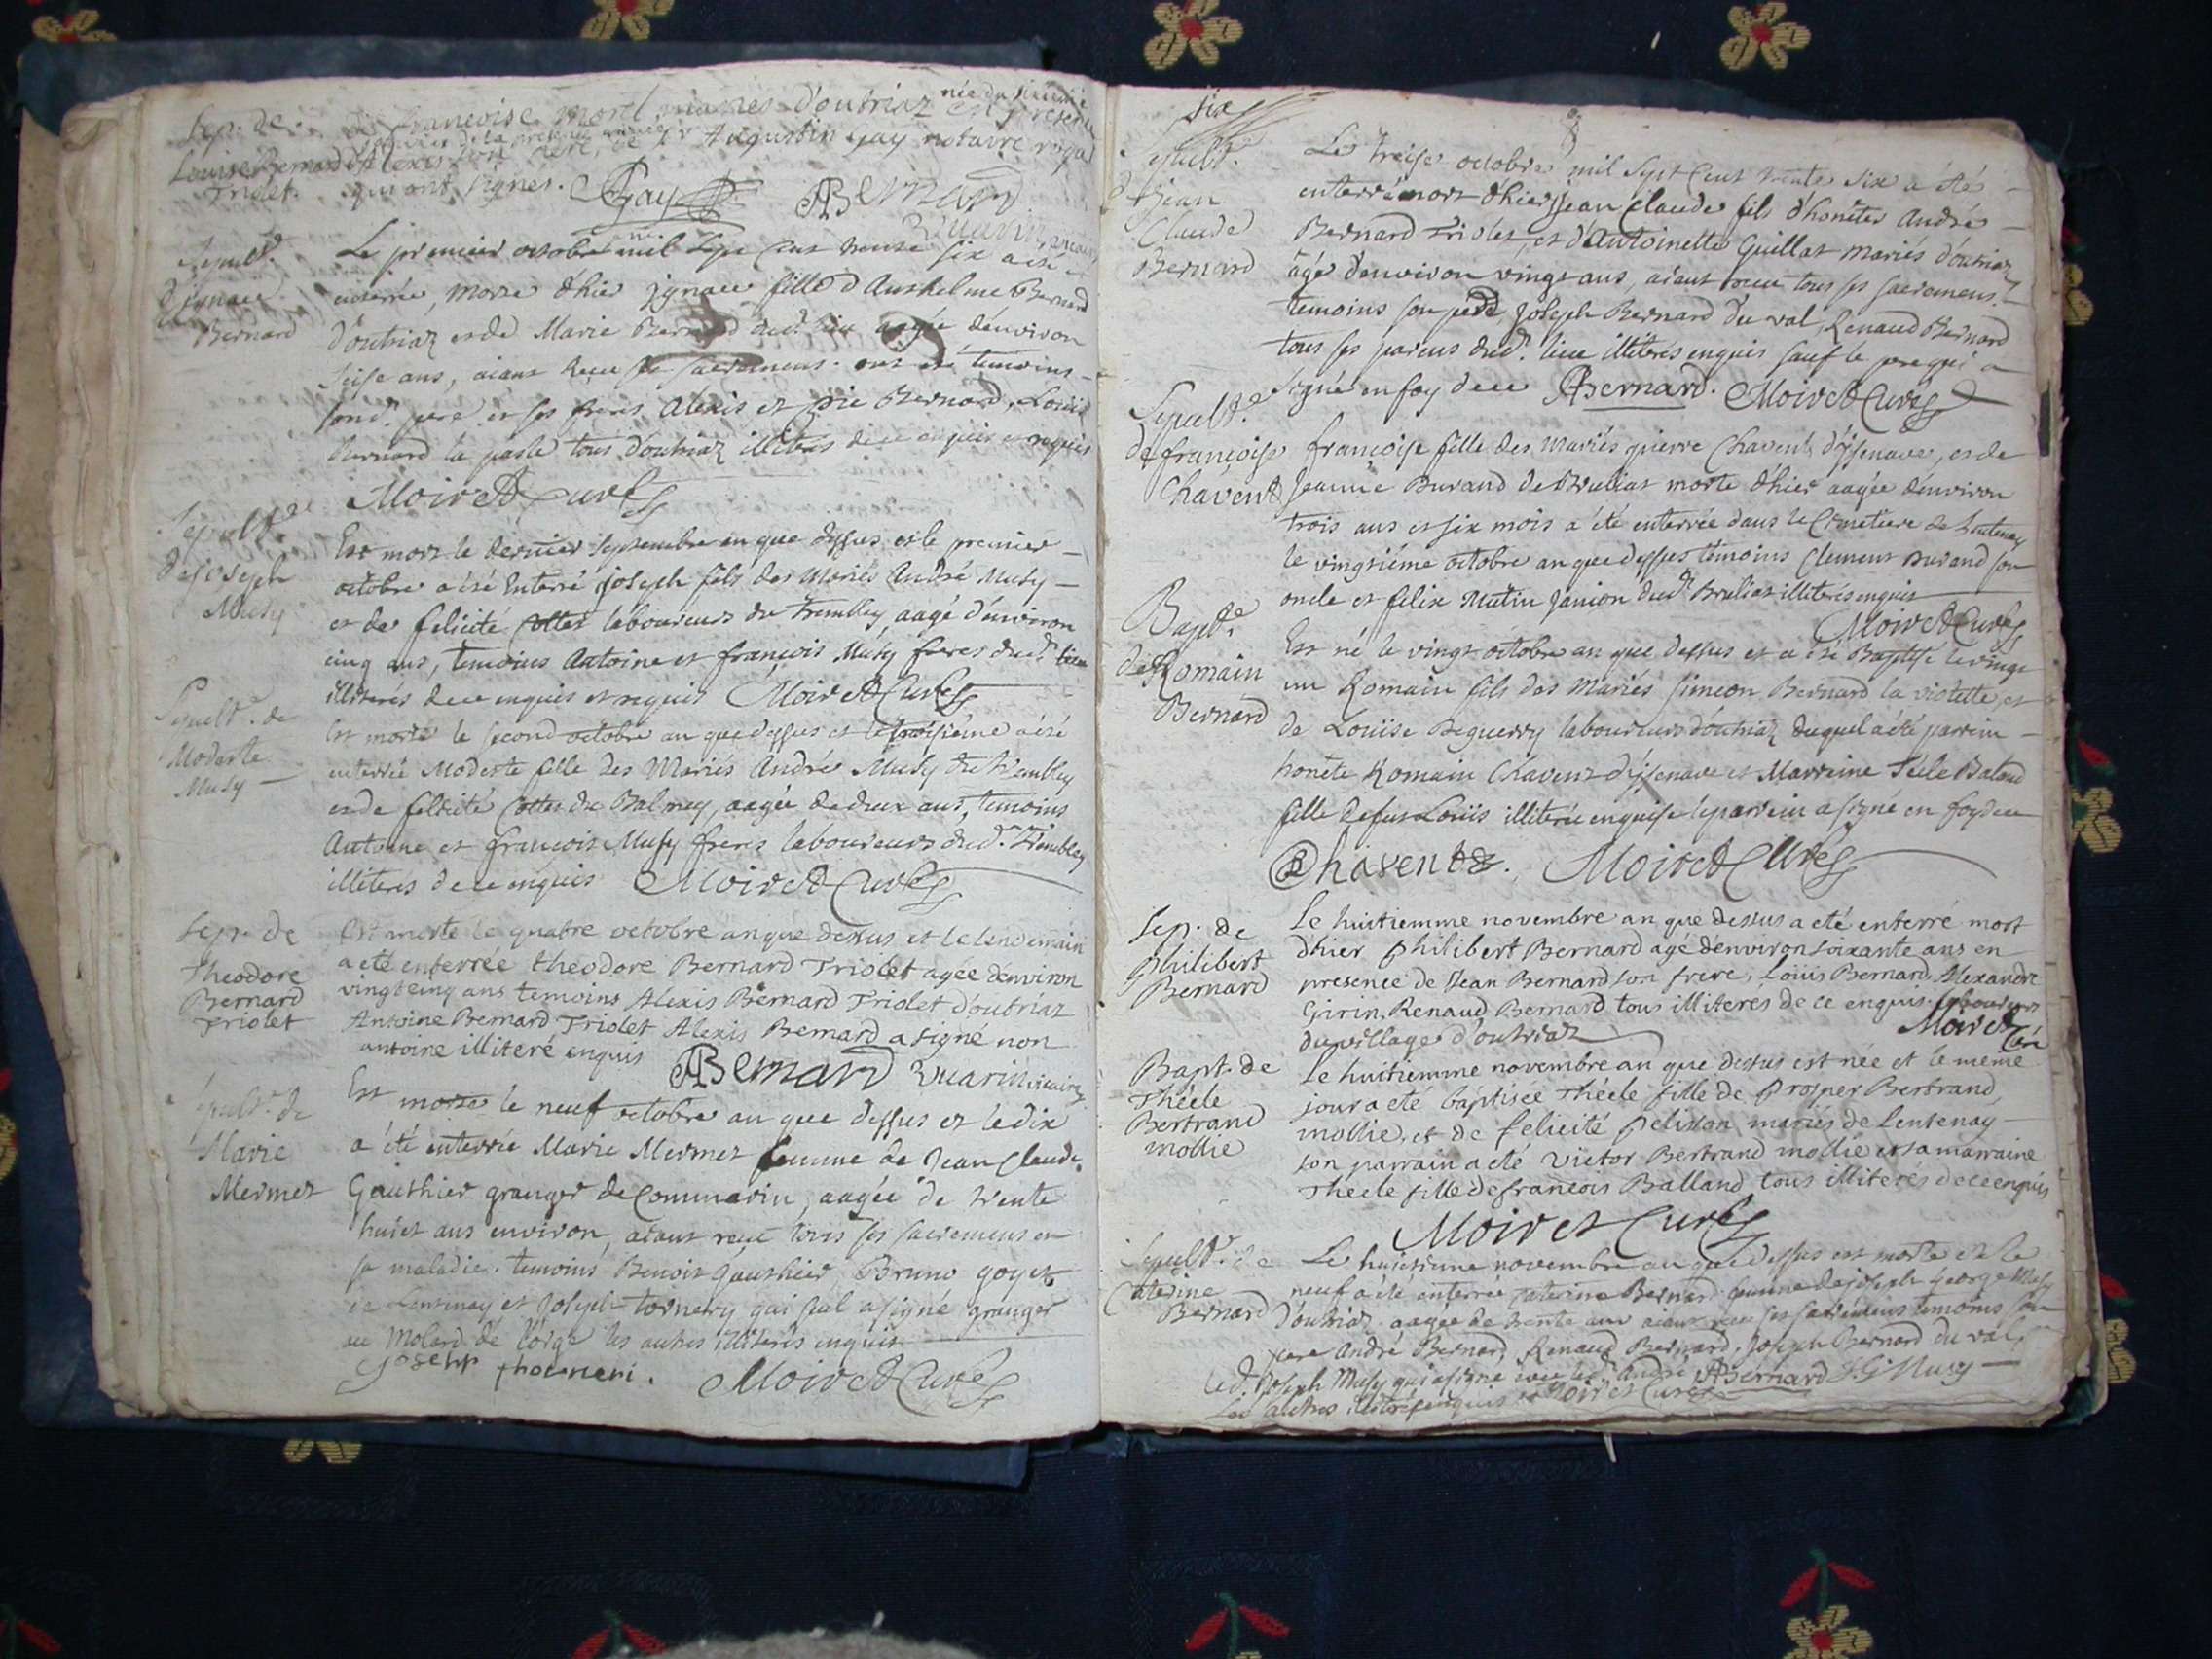 Sep. de
Louise Bernard
Triolet.
de francoise morel mariés d'outriaz née du sixieme
fevrier de la presente année en presence
d'Alexis son pere, de Sr Augustin Gay notaire royal
qui ont signés. Gay ABernard
Vuarin vicaire
Sepult.e
d'jgnace
Bernard
Le premier octobre mil Sept Cent trente six a été
enterrée, morte d'hier jgnace fille d'Anthelme Bernard
d'outriaz et de Marie Bernard dud. lieu aagée d'environ
seise ans, aiant Receu ses sacremens. ont été temoins
sond. pere et ses freres Alexis et Bernard, Louis
Bernard la paste tous d'outriaz illiterés de ce enquis et requis
Moiret Curé
Sepult.e
de Joseph
Musy
Est mort le dernier Septembre an que dessus et le premier
octobre a été Enterré joseph fils des Mariés André Musy
et de felicité Cottet laboureurs du Trembley aagé d'environ
cinq ans, temoins Antoine et françois Musy freres dud. lieu
illiterés de ce enquis et requis Moiret Curé
Sepult.e de
Modeste
Musy
Est morte le second octobre an que dessus et le troisiéme a été
enterrée Modeste fille des Mariés André Musy du Trembley
et de felicité Cottet du Balmey, aagée de deux ans, temoins
Antoine et françois Musy freres laboureurs dud. Trembley
illiterés de ce enquis Moiret Curé
Sep. de
theodore
Bernard
Triolet
Est morte le quatre octobre an que dessus et le lendemain
a eté enterrée theodore Bernard Triolet agée d'environ
vingt cinq ans temoins Alexis Bernard Triolet d'outriaz
Antoine Bernard Triolet Alexis Bernard a signé non
antoine illiteré enquis ABernard Vuarin vicaire
Sepult.e de
Marie
Mermet
Est morte le neuf octobre an que dessus et le dix
a été enterrée Marie Mermet femme de Jean Claude
Gauthier granger de Commarin, aagée de trente
huict ans environ, aiant reçu tous ses sacremens en
sa maladie. temoins Benoit Gauthier, Bruno goyet
de Lentenay et Joseph tornery qui seul a signé granger
au Molard de l'orge les autres illiterés enquis
Joseph thorneri. Moiret Curé
six
Sepult.e
d Jean
Claude
Bernard
Le treise octobre mil Sept Cent trente six a été
enterré mort d'hier jean Claude fils d'honête André
Bernard Triolet, et d'Antoinette Guillat mariés d'outriaz
agé d'environ vingt ans, aiant receu tous ses sacremens.
temoins son pere Joseph Bernard du val, Renaud Bernard
tous ses parens dud. lieu illiterés enquis sauf le pere qui a
signé en foy de ce ABernard. Moiret Curé
Sepult.e
de françoise
Chavent
françoise fille des Mariés pierre Chavent d'jssenave, et de
Jeanne Burand de Brulliat morte d'hier aagée d'environ
trois ans et six mois a été enterrée dans le Cimetiere de Lentenay
le vingtiéme octobre an que dessus temoins Clement Durand son
oncle et felix Mutin Janion dud. Bruliat illiterés enquis
Moiret Curé
Bapt.e
de Romain
Bernard
Est né le vingt octobre an que dessus et a été Baptisé le vingt
un Romain fils des Mariés simeon Bernard la violette, et
de Louise Beguerry laboureurs d'outriaz duquel a été parrein
honête Romain Chavent d'jssenave et Marreine Técle Baland
fille de feu Louis illiterée enquise le parrein a signé en foy de ce
Chavent. Moiret Curé
Sep. de
philibert
Bernard
Le huitiemme novembre an que dessus a eté enterré mort
d'hier philibert Bernard agé d'environ soixante ans en
presence de Jean Bernard son frere, Louis Bernard, Alexandre
Girin, Renaud Bernard tous illiteres de ce enquis laboureurs
du village d'outriaz Moiret Curé
Bapt. de
Thécle
Bertrand
mollie
Le huitiemme novembre an que dessus est née et le meme
jour a eté baptisée Thécle fille de prosper Bertrand
mollie, et de felicité pelisson mariés de Lentenay
son parrain a eté victor Bertrand mollie et sa marraine
Thécle fille de francois Balland tous illiterés de ce enquis
Moiret Curé
Sepult.e de
Caterine
Bernard
Le huictiéme novembre an que dessus est morte et le
neuf a été enterrée Caterine Bernard femme de joseph George Musy
d'outriaz aagée de trente ans aiant receu ses sacremens temoins son
pere André Bernard, Renaud Bernard, Joseph Bernard du val,
led. Joseph Musy qui a signé avec led. André ABernard J.G Musy
Les autres illiterés enquis Moiret Curé